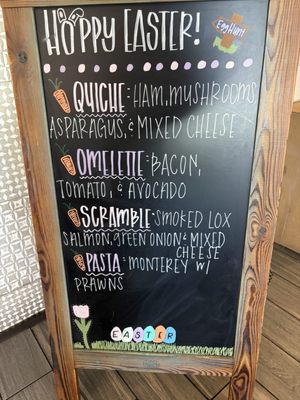 HOPPY EASTER!
EggHunt
QUICHE: HAM, MUSHROOMS,
ASPARAGUS, & MIXED CHEESE
OMELETTE: BACON,
TOMATO, & AVOCADO
SCRAMBLE: SMOKED LOX
SALMON, GREEN ONION & MIXED
CHEESE
PASTA: MONTEREY W/
PRAWNS
EASTER